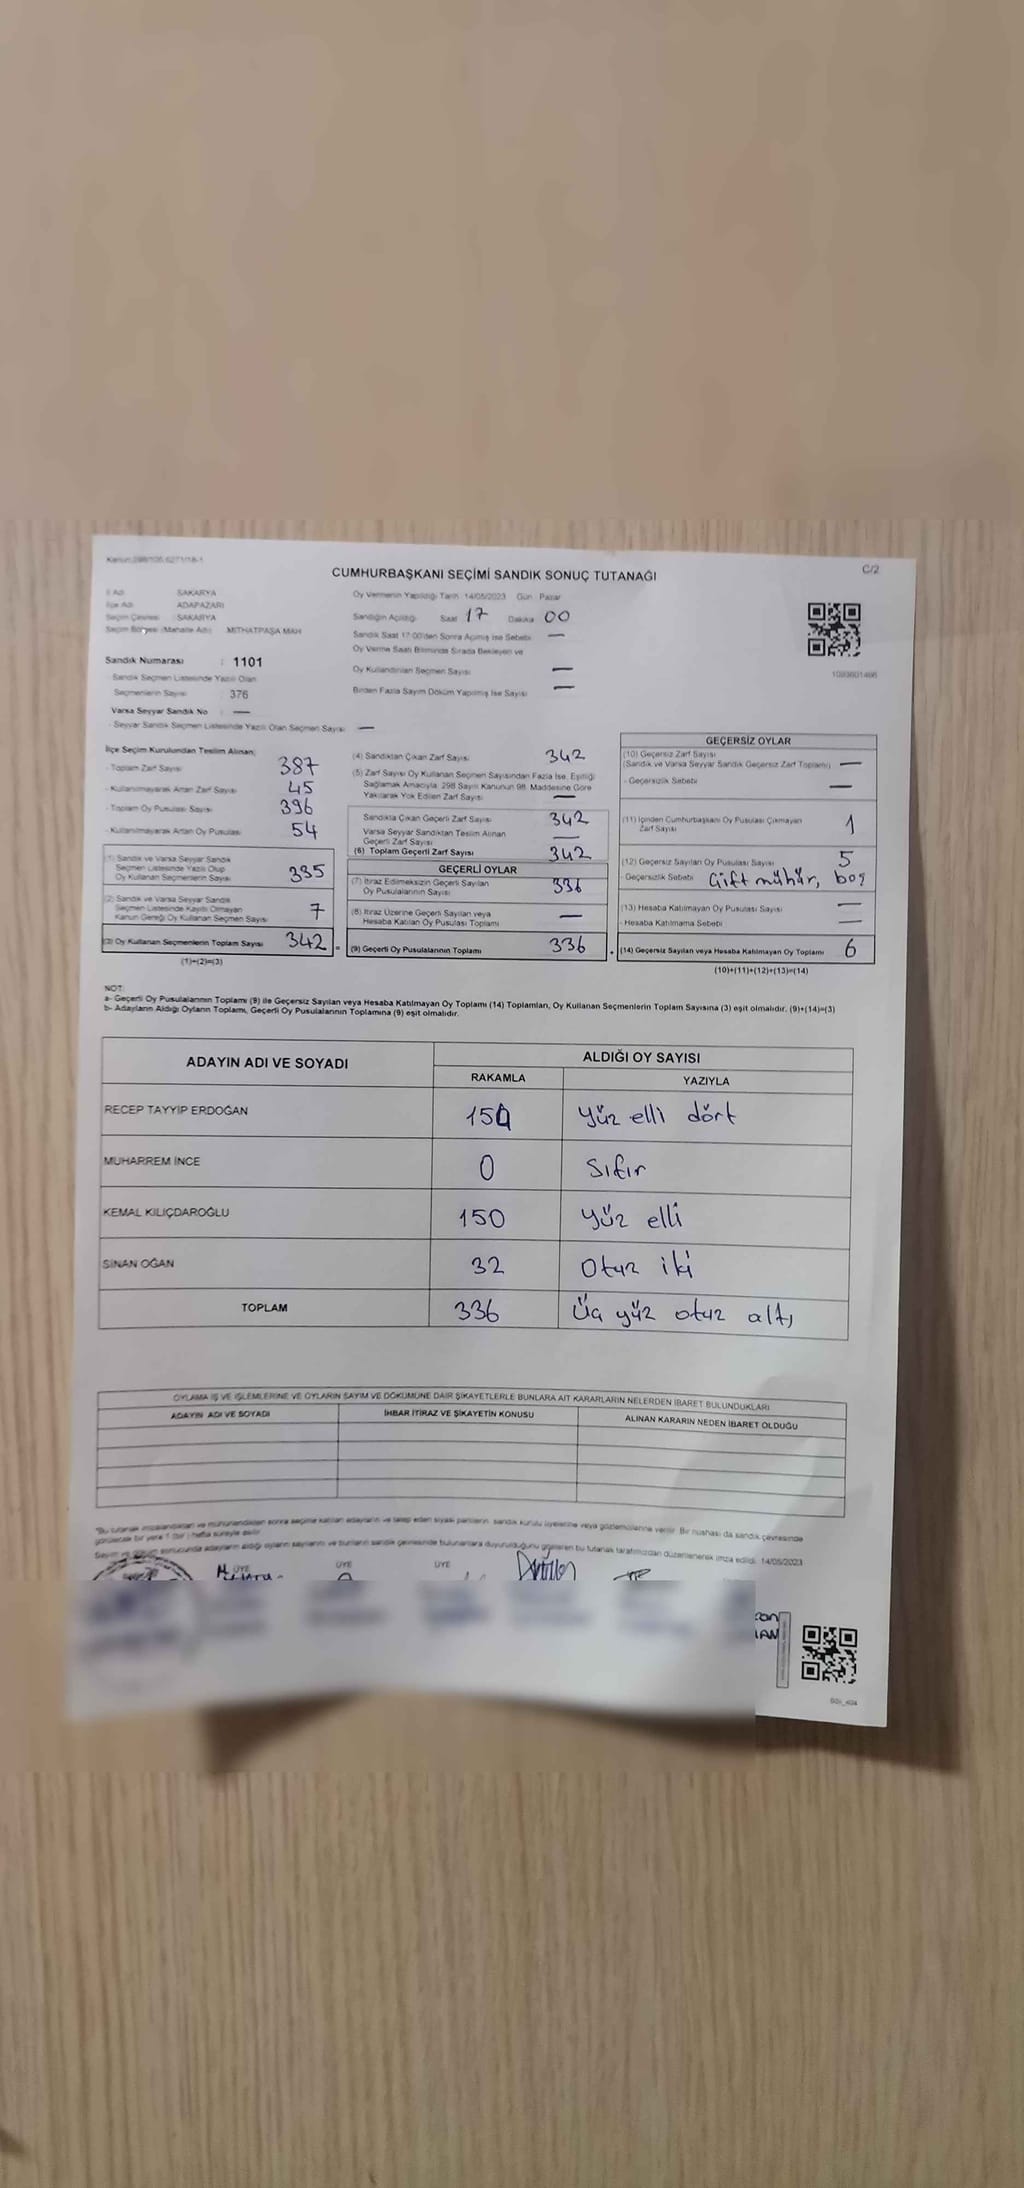 CUMHURBAŞKANI SEÇİMİ SANDIK SONUÇ TUTANAĞI
C/2
İl Adı : SAKARYA
İlçe Adı : ADAPAZARI
Seçim Çevresi : SAKARYA
Seçim Bölgesi (Mahalle Adı) : MİTHATPAŞA MAH
Sandık Numarası : 1101
Sandık Seçmen Listesinde Yazılı Olan
Seçmenlerin Sayısı : 376
Varsa Seyyar Sandık No : —
- Seyyar Sandık Seçmen Listesinde Yazılı Olan Seçmen Sayısı : —
Oy Vermenin Yapıldığı Tarih : 14/05/2023 Gün : Pazar
Sandığın Açıldığı Saat 17 Dakika 00
Sandık Saat 17:00'den Sonra Açılmış İse Sebebi —
Oy Verme Saati Bitiminde Sırada Bekleyen ve
Oy Kullandırılan Seçmen Sayısı —
Birden Fazla Sayım Döküm Yapılmış İse Sayısı —
1093601466
İlçe Seçim Kurulundan Teslim Alınan;
- Toplam Zarf Sayısı 387
- Kullanılmayarak Artan Zarf Sayısı 45
- Toplam Oy Pusulası Sayısı 396
- Kullanılmayarak Artan Oy Pusulası 54
(1) Sandık ve Varsa Seyyar Sandık
Seçmen Listesinde Yazılı Olup
Oy Kullanan Seçmenlerin Sayısı 335
(2) Sandık ve Varsa Seyyar Sandık
Seçmen Listesinde Kayıtlı Olmayan
Kanun Gereği Oy Kullanan Seçmen Sayısı 7
(3) Oy Kullanan Seçmenlerin Toplam Sayısı 342
(1)+(2)=(3)
(4) Sandıktan Çıkan Zarf Sayısı 342
(5) Zarf Sayısı Oy Kullanan Seçmen Sayısından Fazla İse, Eşitliği
Sağlamak Amacıyla, 298 Sayılı Kanunun 98. Maddesine Göre
Yakılarak Yok Edilen Zarf Sayısı —
Sandıkta Çıkan Geçerli Zarf Sayısı 342
Varsa Seyyar Sandıktan Teslim Alınan
Geçerli Zarf Sayısı —
(6) Toplam Geçerli Zarf Sayısı 342
GEÇERLİ OYLAR
(7) İtiraz Edilmeksizin Geçerli Sayılan
Oy Pusulalarının Sayısı 336
(8) İtiraz Üzerine Geçerli Sayılan veya
Hesaba Katılan Oy Pusulası Toplamı —
(9) Geçerli Oy Pusulalarının Toplamı 336
GEÇERSİZ OYLAR
(10) Geçersiz Zarf Sayısı
(Sandık ve Varsa Seyyar Sandık Geçersiz Zarf Toplamı) —
- Geçersizlik Sebebi —
(11) İçinden Cumhurbaşkanı Oy Pusulası Çıkmayan
Zarf Sayısı 1
(12) Geçersiz Sayılan Oy Pusulası Sayısı 5
- Geçersizlik Sebebi Çift mühür, boş
(13) Hesaba Katılmayan Oy Pusulası Sayısı —
- Hesaba Katılmama Sebebi —
(14) Geçersiz Sayılan veya Hesaba Katılmayan Oy Toplamı 6
(10)+(11)+(12)+(13)=(14)
NOT:
a- Geçerli Oy Pusulalarının Toplamı (9) ile Geçersiz Sayılan veya Hesaba Katılmayan Oy Toplamı (14) Toplamları, Oy Kullanan Seçmenlerin Toplam Sayısına (3) eşit olmalıdır. (9)+(14)=(3)
b- Adayların Aldığı Oyların Toplamı, Geçerli Oy Pusulalarının Toplamına (9) eşit olmalıdır.
ADAYIN ADI VE SOYADI ALDIĞI OY SAYISI
RAKAMLA YAZIYLA
RECEP TAYYİP ERDOĞAN 154 yüz elli dört
MUHARREM İNCE 0 sıfır
KEMAL KILIÇDAROĞLU 150 yüz elli
SİNAN OĞAN 32 otuz iki
TOPLAM 336 Üç yüz otuz altı
OYLAMA İŞ VE İŞLEMLERİNE VE OYLARIN SAYIM VE DÖKÜMÜNE DAİR ŞİKAYETLERLE BUNLARA AİT KARARLARIN NELERDEN İBARET BULUNDUKLARI
ADAYIN ADI VE SOYADI İHBAR İTİRAZ VE ŞİKAYETİN KONUSU ALINAN KARARIN NEDEN İBARET OLDUĞU
"Bu tutanak imzalandıktan ve mühürlendikten sonra seçime katılan adayların ve talep eden siyasi partilerin sandık kurulu üyelerine veya gözlemcilerine verilir. Bir nüshası da sandık çevresinde
görülecek bir yere 1 (bir) hafta süreyle asılır.
Sayım ve döküm sonucunda adayların aldığı oyların sayılarını ve bunların sandık çevresinde bulunanlara duyurulduğunu gösteren bu tutanak tarafımızdan düzenlenerek imza edildi. 14/05/2023
ÜYE ÜYE ÜYE